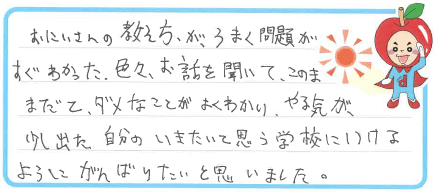 おにいさんの教え方、が、うまく問題が
すぐわかった。色々、お話を聞いて、このま
まだと、ダメなことがよくわかり、やる気が、
少し出た。自分のいきたいと思う学校にいける
ようにがんばりたいと思いました。